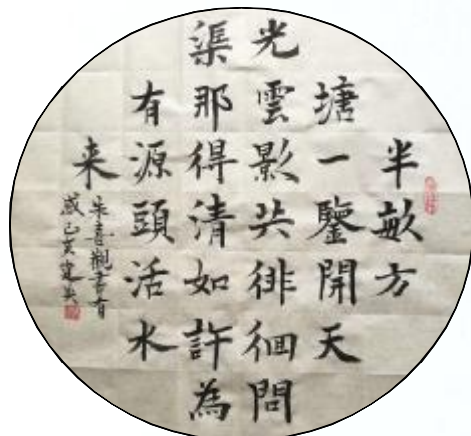 半畝方
塘一鑒開天
光雲影共徘徊問
渠那得清如許為
有源頭活水
来
朱熹觀書有
感己亥